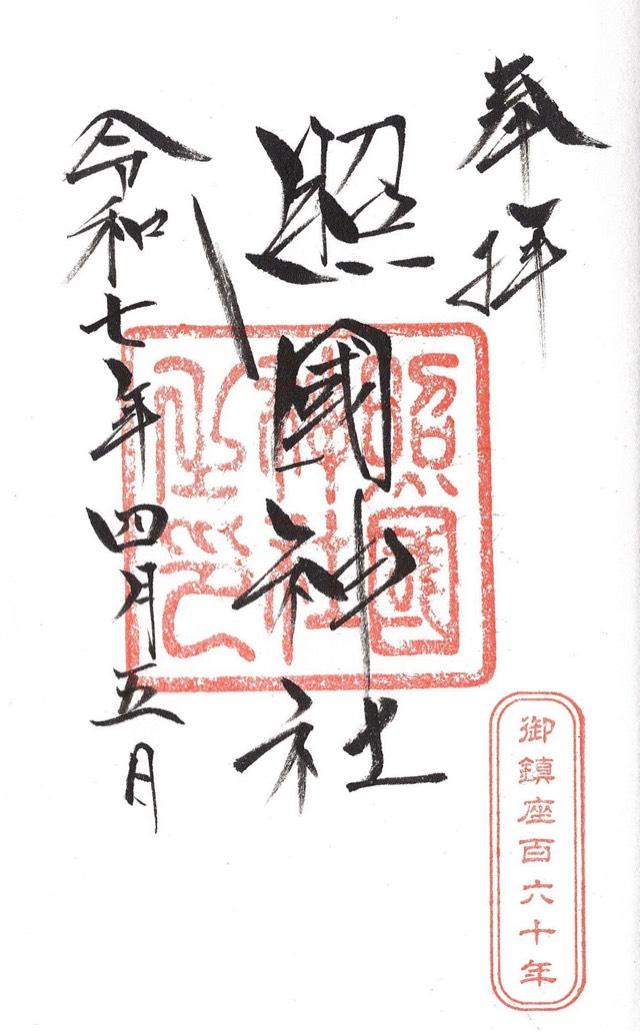 奉拝
照國神社
令和七年四月五日
照國
神社
御鎮座百六十年